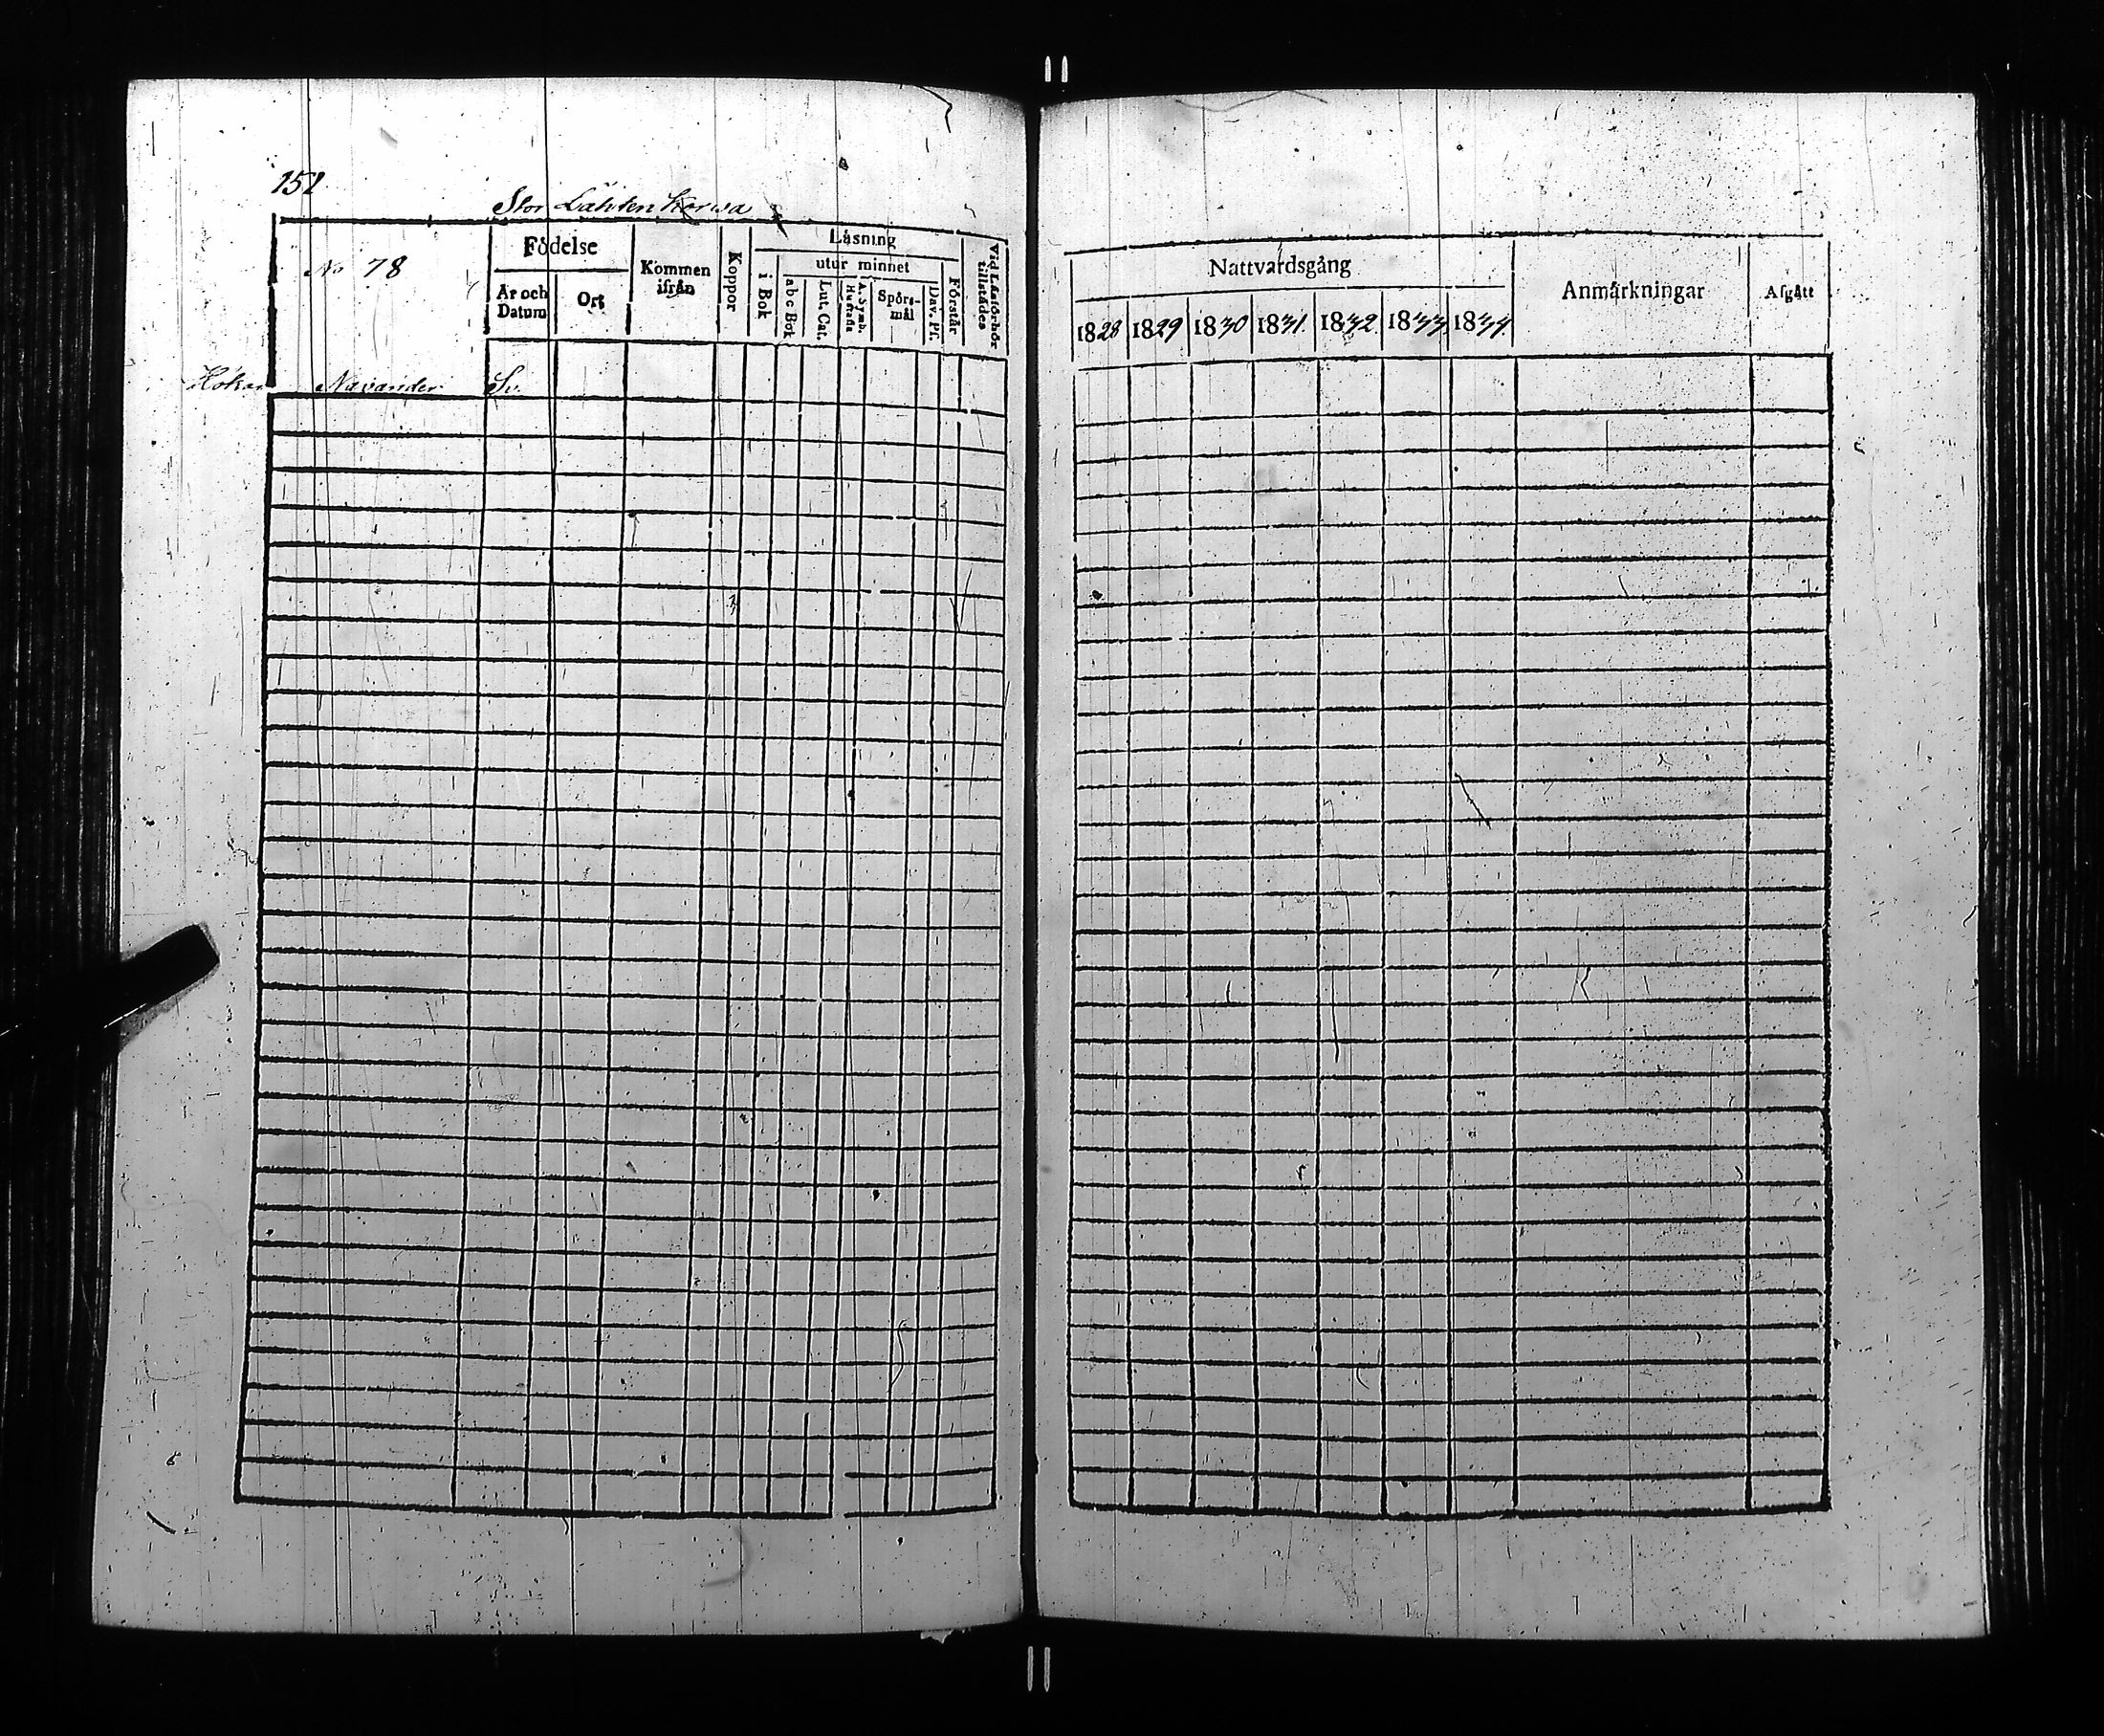 151
Stor Lähten Korwa
No 78
Födelse
År och Datum
Ort
Kommen ifrån
Koppor
Läsning
i Bok
utur minnet
abc Bok
Lut. Cat.
A. Symb. Hustafla
Spörsmål
Dav. Ps.
Förstår
Vid Läsförhör tillstädes
Nattvardsgång
1828 1829 1830 1831. 1832. 1833. 1834.
Anmärkningar
Afgått
Navander Sv.